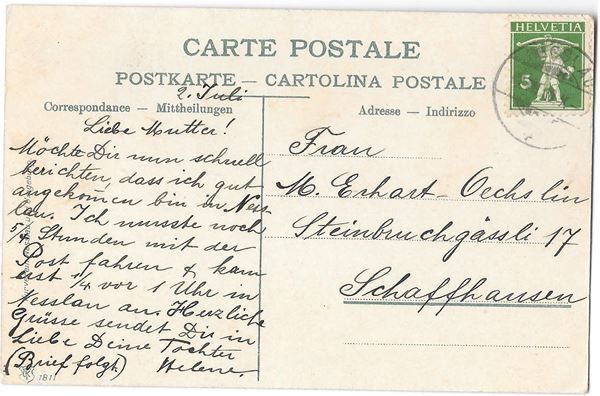 CARTE POSTALE
POSTKARTE — CARTOLINA POSTALE
HELVETIA
5
Correspondance — Mittheilungen
Adresse — Indirizzo
2. Juli
Liebe Mutter!
Möchte Dir nun schnell
berichten, dass ich gut
angekommen bin in Ness-
lau. Ich musste noch
5/4 Stunden mit der
Post fahren & kam
erst 1/4 vor 1 Uhr in
Nesslau an. Herzliche
Grüsse sendet Dir in
Liebe Deine Tochter
(Brief folgt.) Helene.
Frau
M. Erhart-Oechslin
Steinbruchgässli 17
Schaffhausen
1811